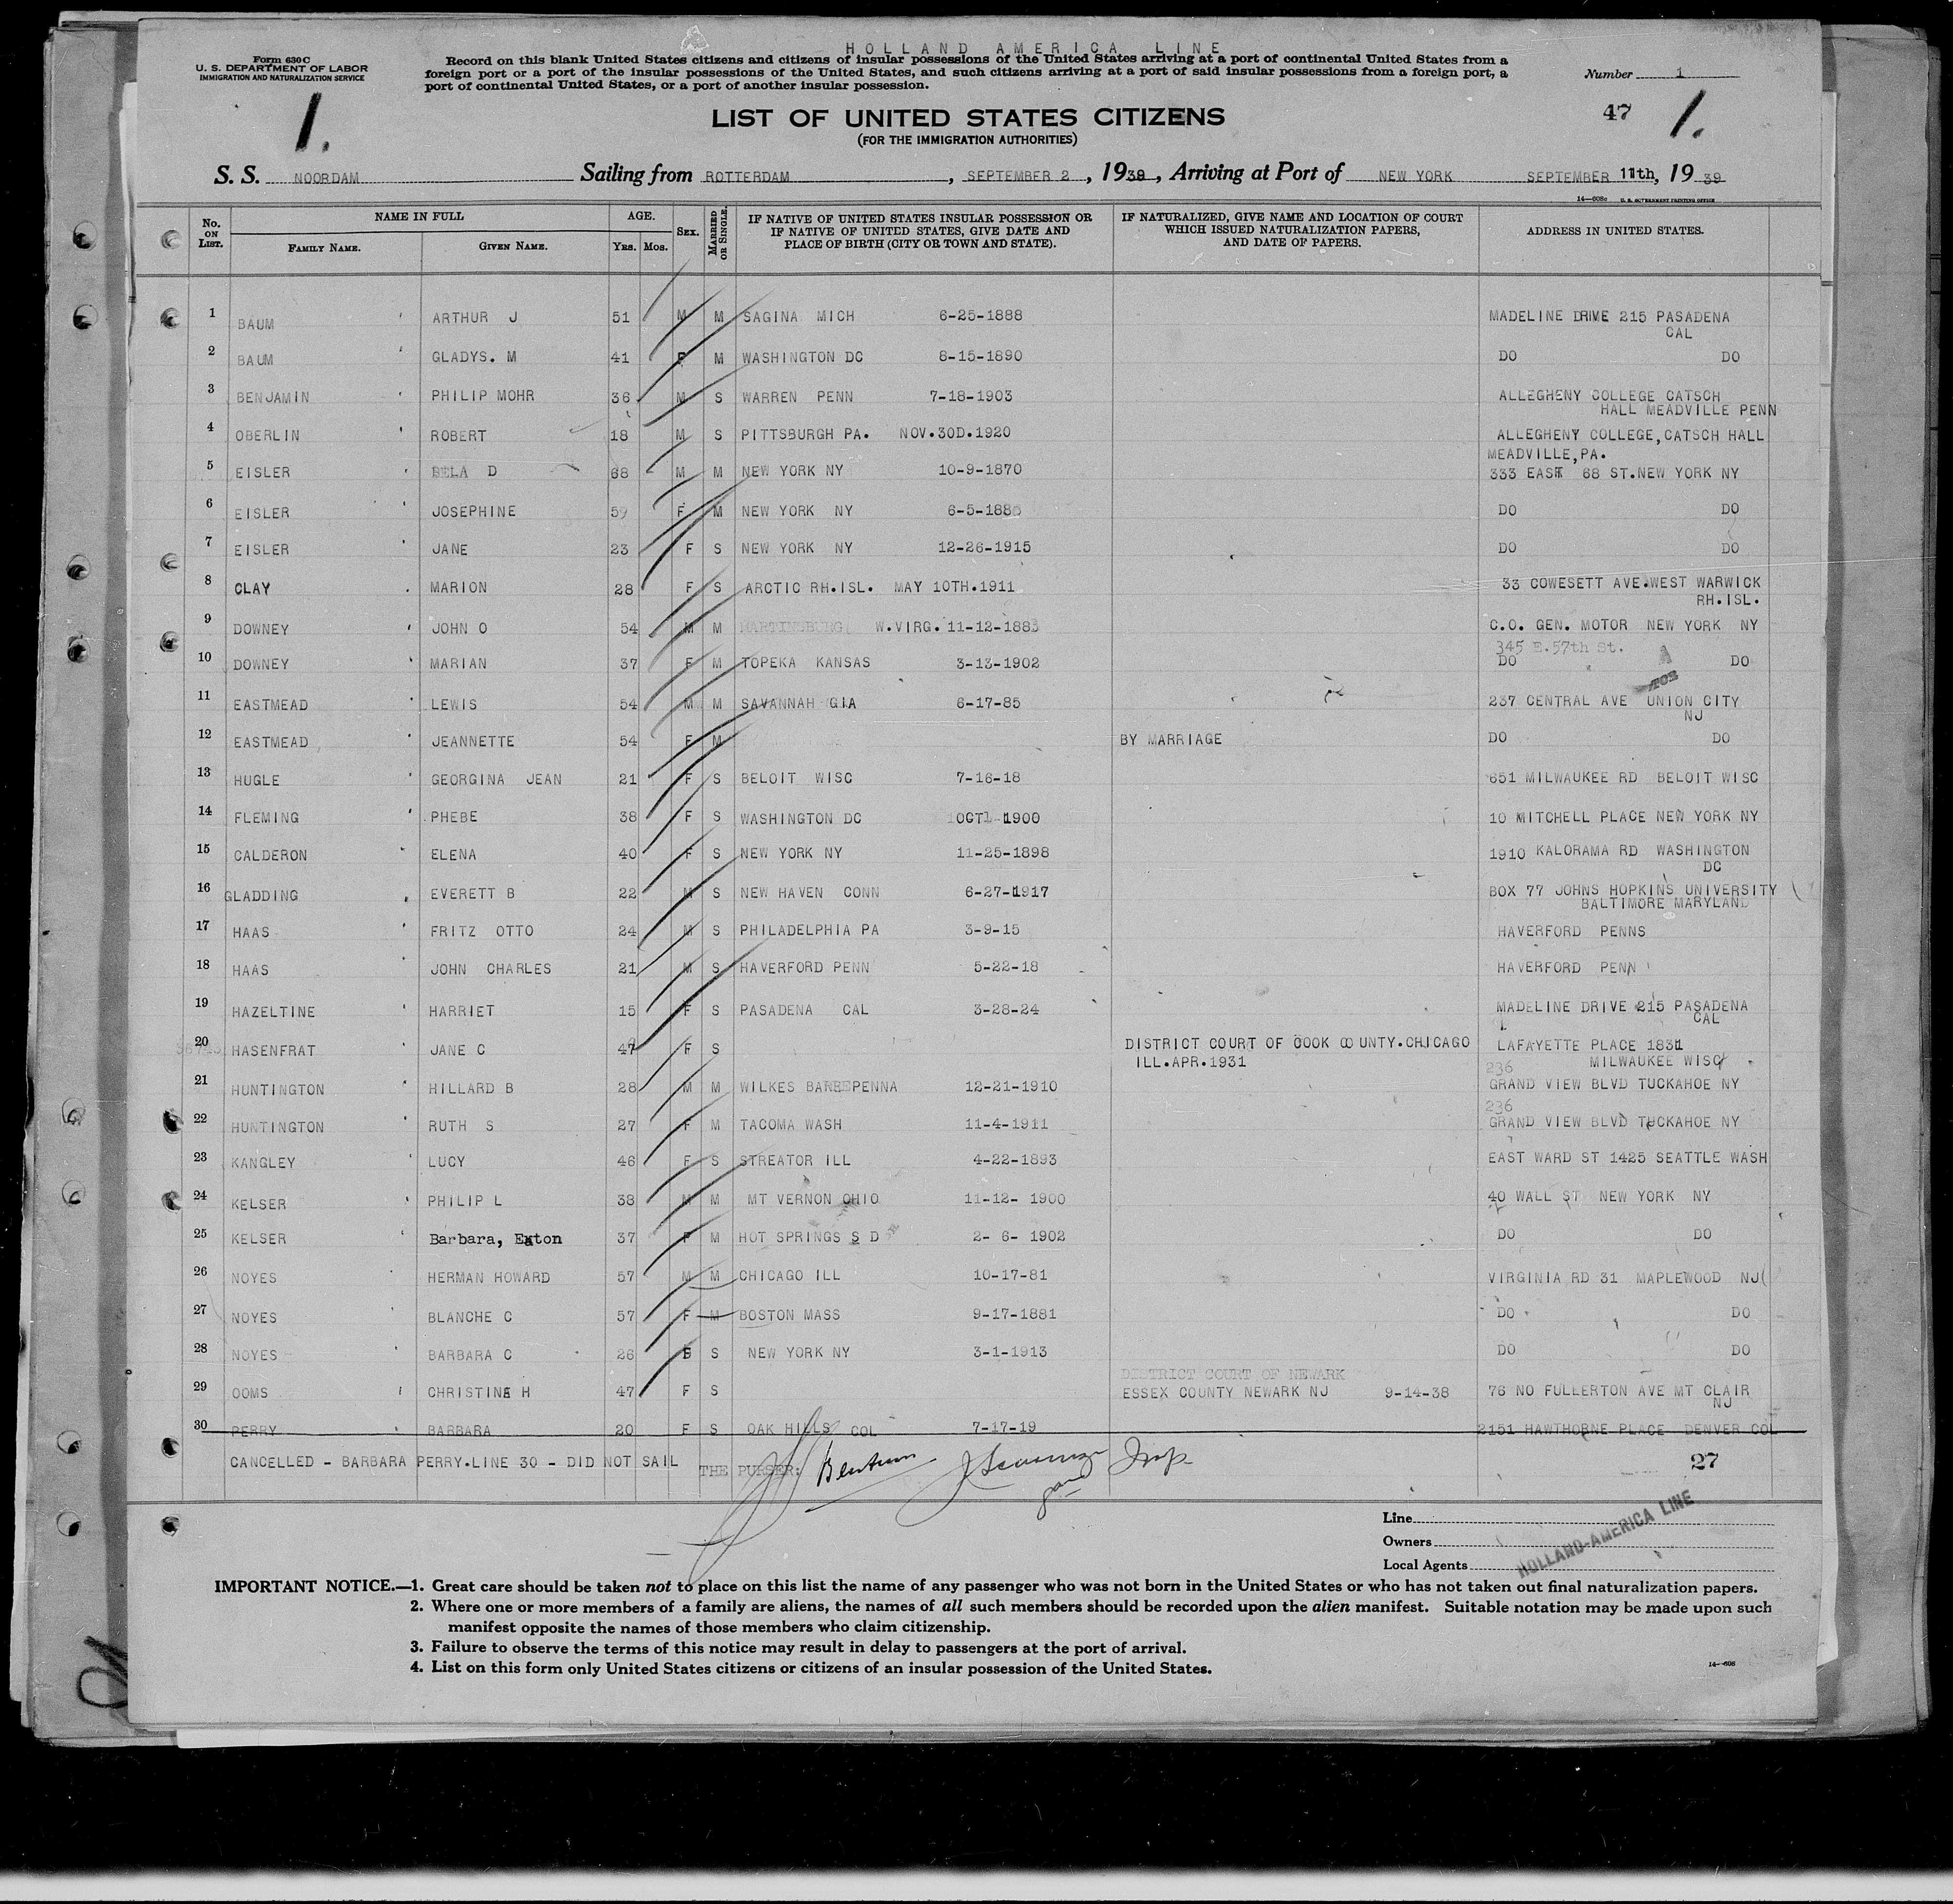 HOLLAND AMERICA LINE
Form 630 C
U. S. DEPARTMENT OF LABOR
IMMIGRATION AND NATURALIZATION SERVICE
Record on this blank United States citizens and citizens of insular possessions of the United States arriving at a port of continental United States from a
foreign port or a port of the insular possessions of the United States, and such citizens arriving at a port of said insular possessions from a foreign port, a
port of continental United States, or a port of another insular possession.
Number 1
1.
LIST OF UNITED STATES CITIZENS
47 1.
(FOR THE IMMIGRATION AUTHORITIES)
S. S. NOORDAM Sailing from ROTTERDAM, SEPTEMBER 2, 1939, Arriving at Port of NEW YORK SEPTEMBER 11th, 19 39
14—608c U. S. GOVERNMENT PRINTING OFFICE
No. ON LIST. NAME IN FULL FAMILY NAME. GIVEN NAME. AGE. YRS. MOS. SEX. MARRIED OR SINGLE. IF NATIVE OF UNITED STATES INSULAR POSSESSION OR IF NATIVE OF UNITED STATES, GIVE DATE AND PLACE OF BIRTH (CITY OR TOWN AND STATE). IF NATURALIZED, GIVE NAME AND LOCATION OF COURT WHICH ISSUED NATURALIZATION PAPERS, AND DATE OF PAPERS. ADDRESS IN UNITED STATES.
1 BAUM ARTHUR J 51 M M SAGINA MICH 6-25-1888 MADELINE DRIVE 215 PASADENA
CAL
2 BAUM GLADYS. M 41 F M WASHINGTON DC 8-15-1890 DO DO
3 BENJAMIN PHILIP MOHR 36 M S WARREN PENN 7-18-1903 ALLEGHENY COLLEGE CATSCH
HALL MEADVILLE PENN
4 OBERLIN ROBERT 18 M S PITTSBURGH PA. NOV.30D.1920 ALLEGHENY COLLEGE,CATSCH HALL
MEADVILLE,PA.
5 EISLER BELA D 68 M M NEW YORK NY 10-9-1870 333 EAST 68 ST.NEW YORK NY
6 EISLER JOSEPHINE 59 F M NEW YORK NY 6-5-1886 DO DO
7 EISLER JANE 23 F S NEW YORK NY 12-26-1915 DO DO
8 CLAY MARION 28 F S ARCTIC RH.ISL. MAY 10TH.1911 33 COWESETT AVE.WEST WARWICK
RH.ISL.
9 DOWNEY JOHN O 54 M M MARTINSBURG W.VIRG. 11-12-1883 C.O. GEN. MOTOR NEW YORK NY
345 E.57th St.
10 DOWNEY MARIAN 37 F M TOPEKA KANSAS 3-13-1902 DO DO
11 EASTMEAD LEWIS 54 M M SAVANNAH GIA 6-17-85 237 CENTRAL AVE UNION CITY
NJ
12 EASTMEAD JEANNETTE 54 F M BY MARRIAGE DO DO
13 HUGLE GEORGINA JEAN 21 F S BELOIT WISC 7-16-18 651 MILWAUKEE RD BELOIT WISC
14 FLEMING PHEBE 38 F S WASHINGTON DC OCT1-1900 10 MITCHELL PLACE NEW YORK NY
15 CALDERON ELENA 40 F S NEW YORK NY 11-25-1898 1910 KALORAMA RD WASHINGTON
DC
16 GLADDING EVERETT B 22 M S NEW HAVEN CONN 6-27-1917 BOX 77 JOHNS HOPKINS UNIVERSITY
BALTIMORE MARYLAND
17 HAAS FRITZ OTTO 24 M S PHILADELPHIA PA 3-9-15 HAVERFORD PENNS
18 HAAS JOHN CHARLES 21 M S HAVERFORD PENN 5-22-18 HAVERFORD PENN
19 HAZELTINE HARRIET 15 F S PASADENA CAL 3-28-24 MADELINE DRIVE 215 PASADENA
CAL
20 HASENFRAT JANE C 47 F S DISTRICT COURT OF COOK COUNTY.CHICAGO LAFAYETTE PLACE 1831
ILL.APR.1931 MILWAUKEE WISC
236
21 HUNTINGTON HILLARD B 28 M M WILKES BARREPENNA 12-21-1910 GRAND VIEW BLVD TUCKAHOE NY
236
22 HUNTINGTON RUTH S 27 F M TACOMA WASH 11-4-1911 GRAND VIEW BLVD TUCKAHOE NY
23 KANGLEY LUCY 46 F S STREATOR ILL 4-22-1893 EAST WARD ST 1425 SEATTLE WASH
24 KELSER PHILIP L 38 M M MT VERNON OHIO 11-12- 1900 40 WALL ST NEW YORK NY
25 KELSER Barbara, Exton 37 F M HOT SPRINGS S D 2- 6- 1902 DO DO
26 NOYES HERMAN HOWARD 57 M M CHICAGO ILL 10-17-81 VIRGINIA RD 31 MAPLEWOOD NJ
27 NOYES BLANCHE C 57 F M BOSTON MASS 9-17-1881 DO DO
28 NOYES BARBARA C 26 F S NEW YORK NY 3-1-1913 DO DO
DISTRICT COURT OF NEWARK
29 OOMS CHRISTINE H 47 F S ESSEX COUNTY NEWARK NJ 9-14-38 76 NO FULLERTON AVE MT CLAIR
NJ
30 PERRY BARBARA 20 F S OAK HILLS COL 7-17-19 2151 HAWTHORNE PLACE DENVER COL
CANCELLED - BARBARA PERRY.LINE 30 - DID NOT SAIL THE PURSER: Insp. 27
Line
Owners
Local Agents
HOLLAND-AMERICA LINE
IMPORTANT NOTICE.—1. Great care should be taken not to place on this list the name of any passenger who was not born in the United States or who has not taken out final naturalization papers.
2. Where one or more members of a family are aliens, the names of all such members should be recorded upon the alien manifest. Suitable notation may be made upon such
manifest opposite the names of those members who claim citizenship.
3. Failure to observe the terms of this notice may result in delay to passengers at the port of arrival.
4. List on this form only United States citizens or citizens of an insular possession of the United States.
14—608